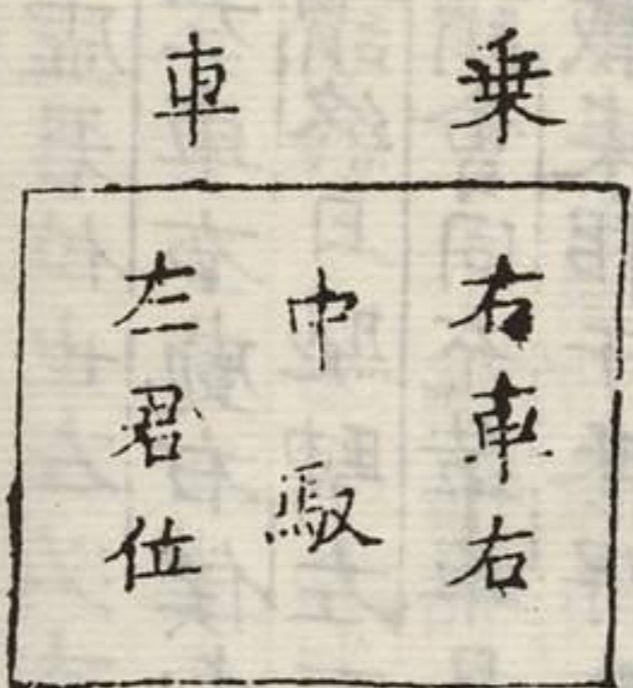 乗車
右車右
中馭
左君位